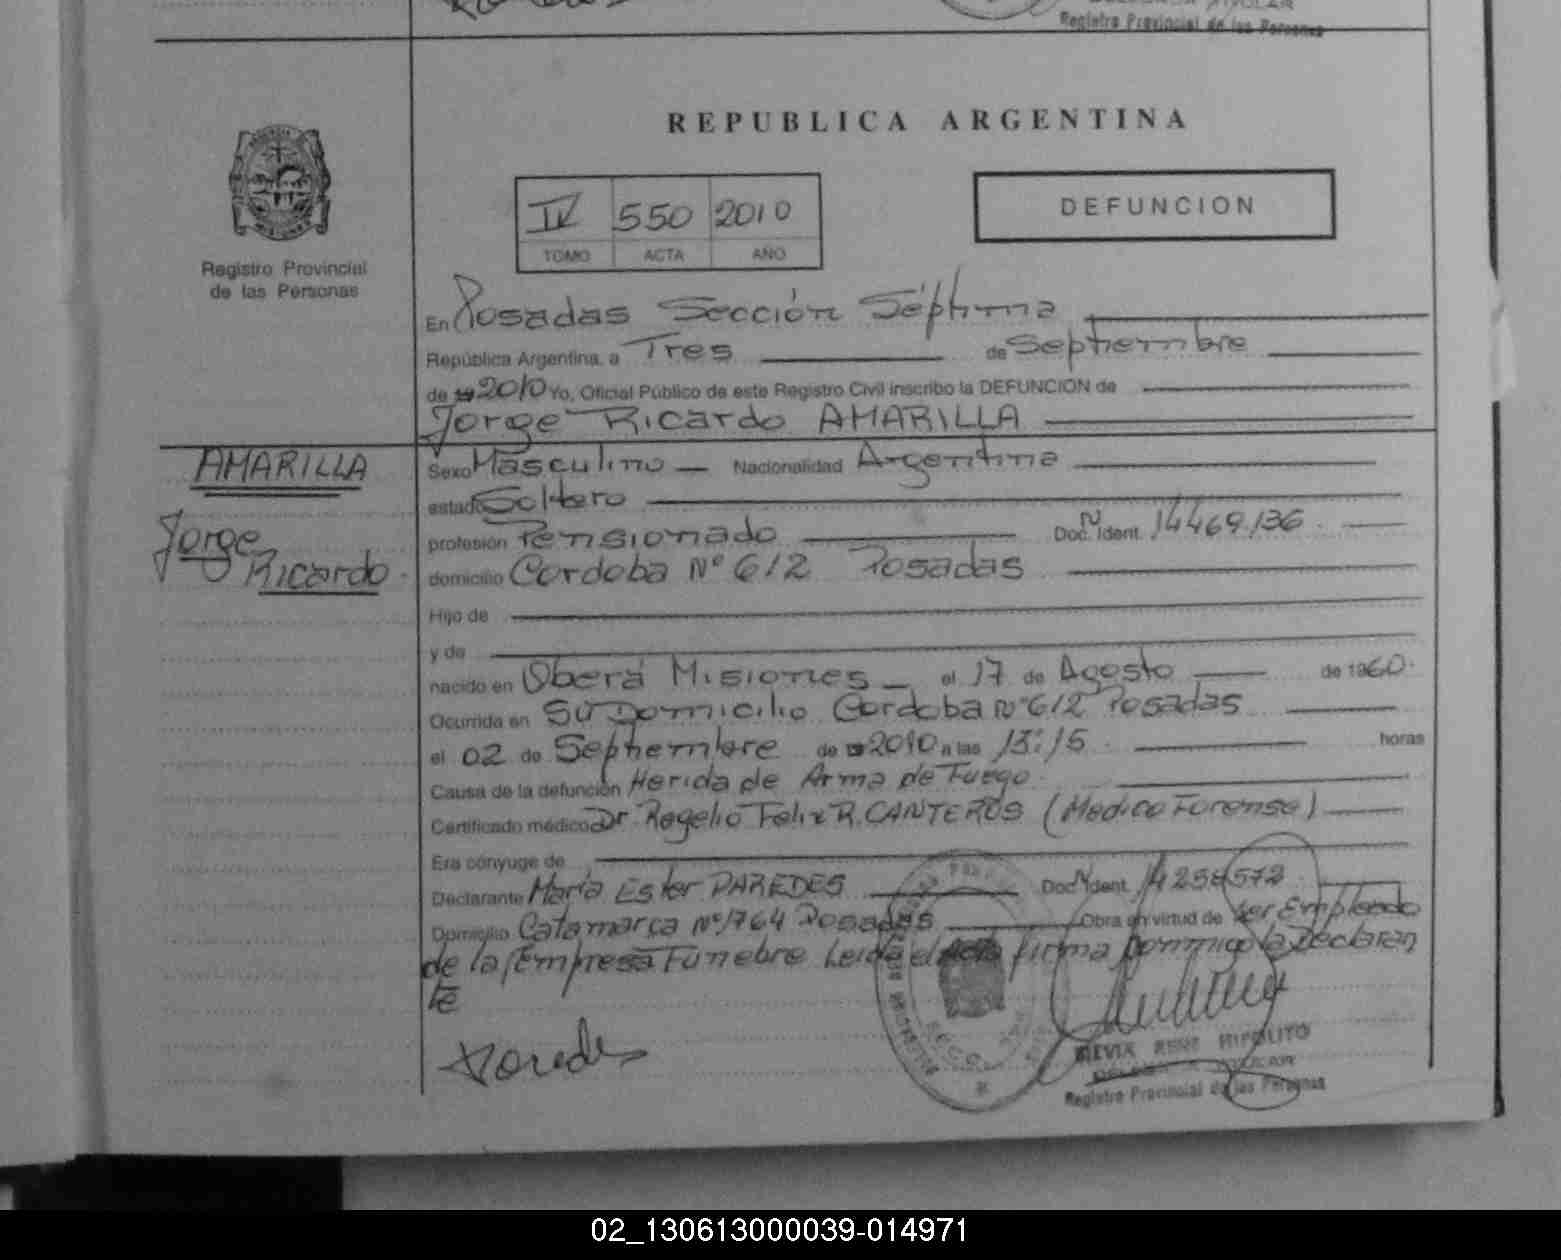 Registro Provincial de las Personas
REPUBLICA ARGENTINA
IV 550 2010
TOMO ACTA AÑO
DEFUNCION
Registro Provincial
de las Personas
En Posadas Sección Séptima
República Argentina, a Tres de Septiembre
de 19 2010 Yo, Oficial Público de este Registro Civil inscribo la DEFUNCION de
Jorge Ricardo AMARILLA
AMARILLA
Jorge
Ricardo
Sexo Masculino Nacionalidad Argentina
estado Soltero
profesión Pensionado Doc. N Ident. 14469.136
domicilio Cordoba Nº 612 Posadas
Hijo de
y de
nacido en Oberá Misiones el 17 de Agosto de 1960.
Ocurrida en Su Domicilio Cordoba Nº 612 Posadas
el 02 de Septiembre de 19 2010 a las 13:15 horas
Causa de la defunción Herida de Arma de Fuego
Certificado médico Dr. Rogelio Felix R. CANTEROS (Medico Forense)
Era cónyuge de
Declarante Maria Ester PAREDES Doc. N Ident. 14258572
Domicilio Catamarca Nº 1764 Posadas Obra en virtud de ser Empleado
de la Empresa Funebre Leida el Acta firma conmigo la Declaran
te
Paredes
RENE HIPOLITO
Registro Provincial de las Personas
02_130613000039-014971